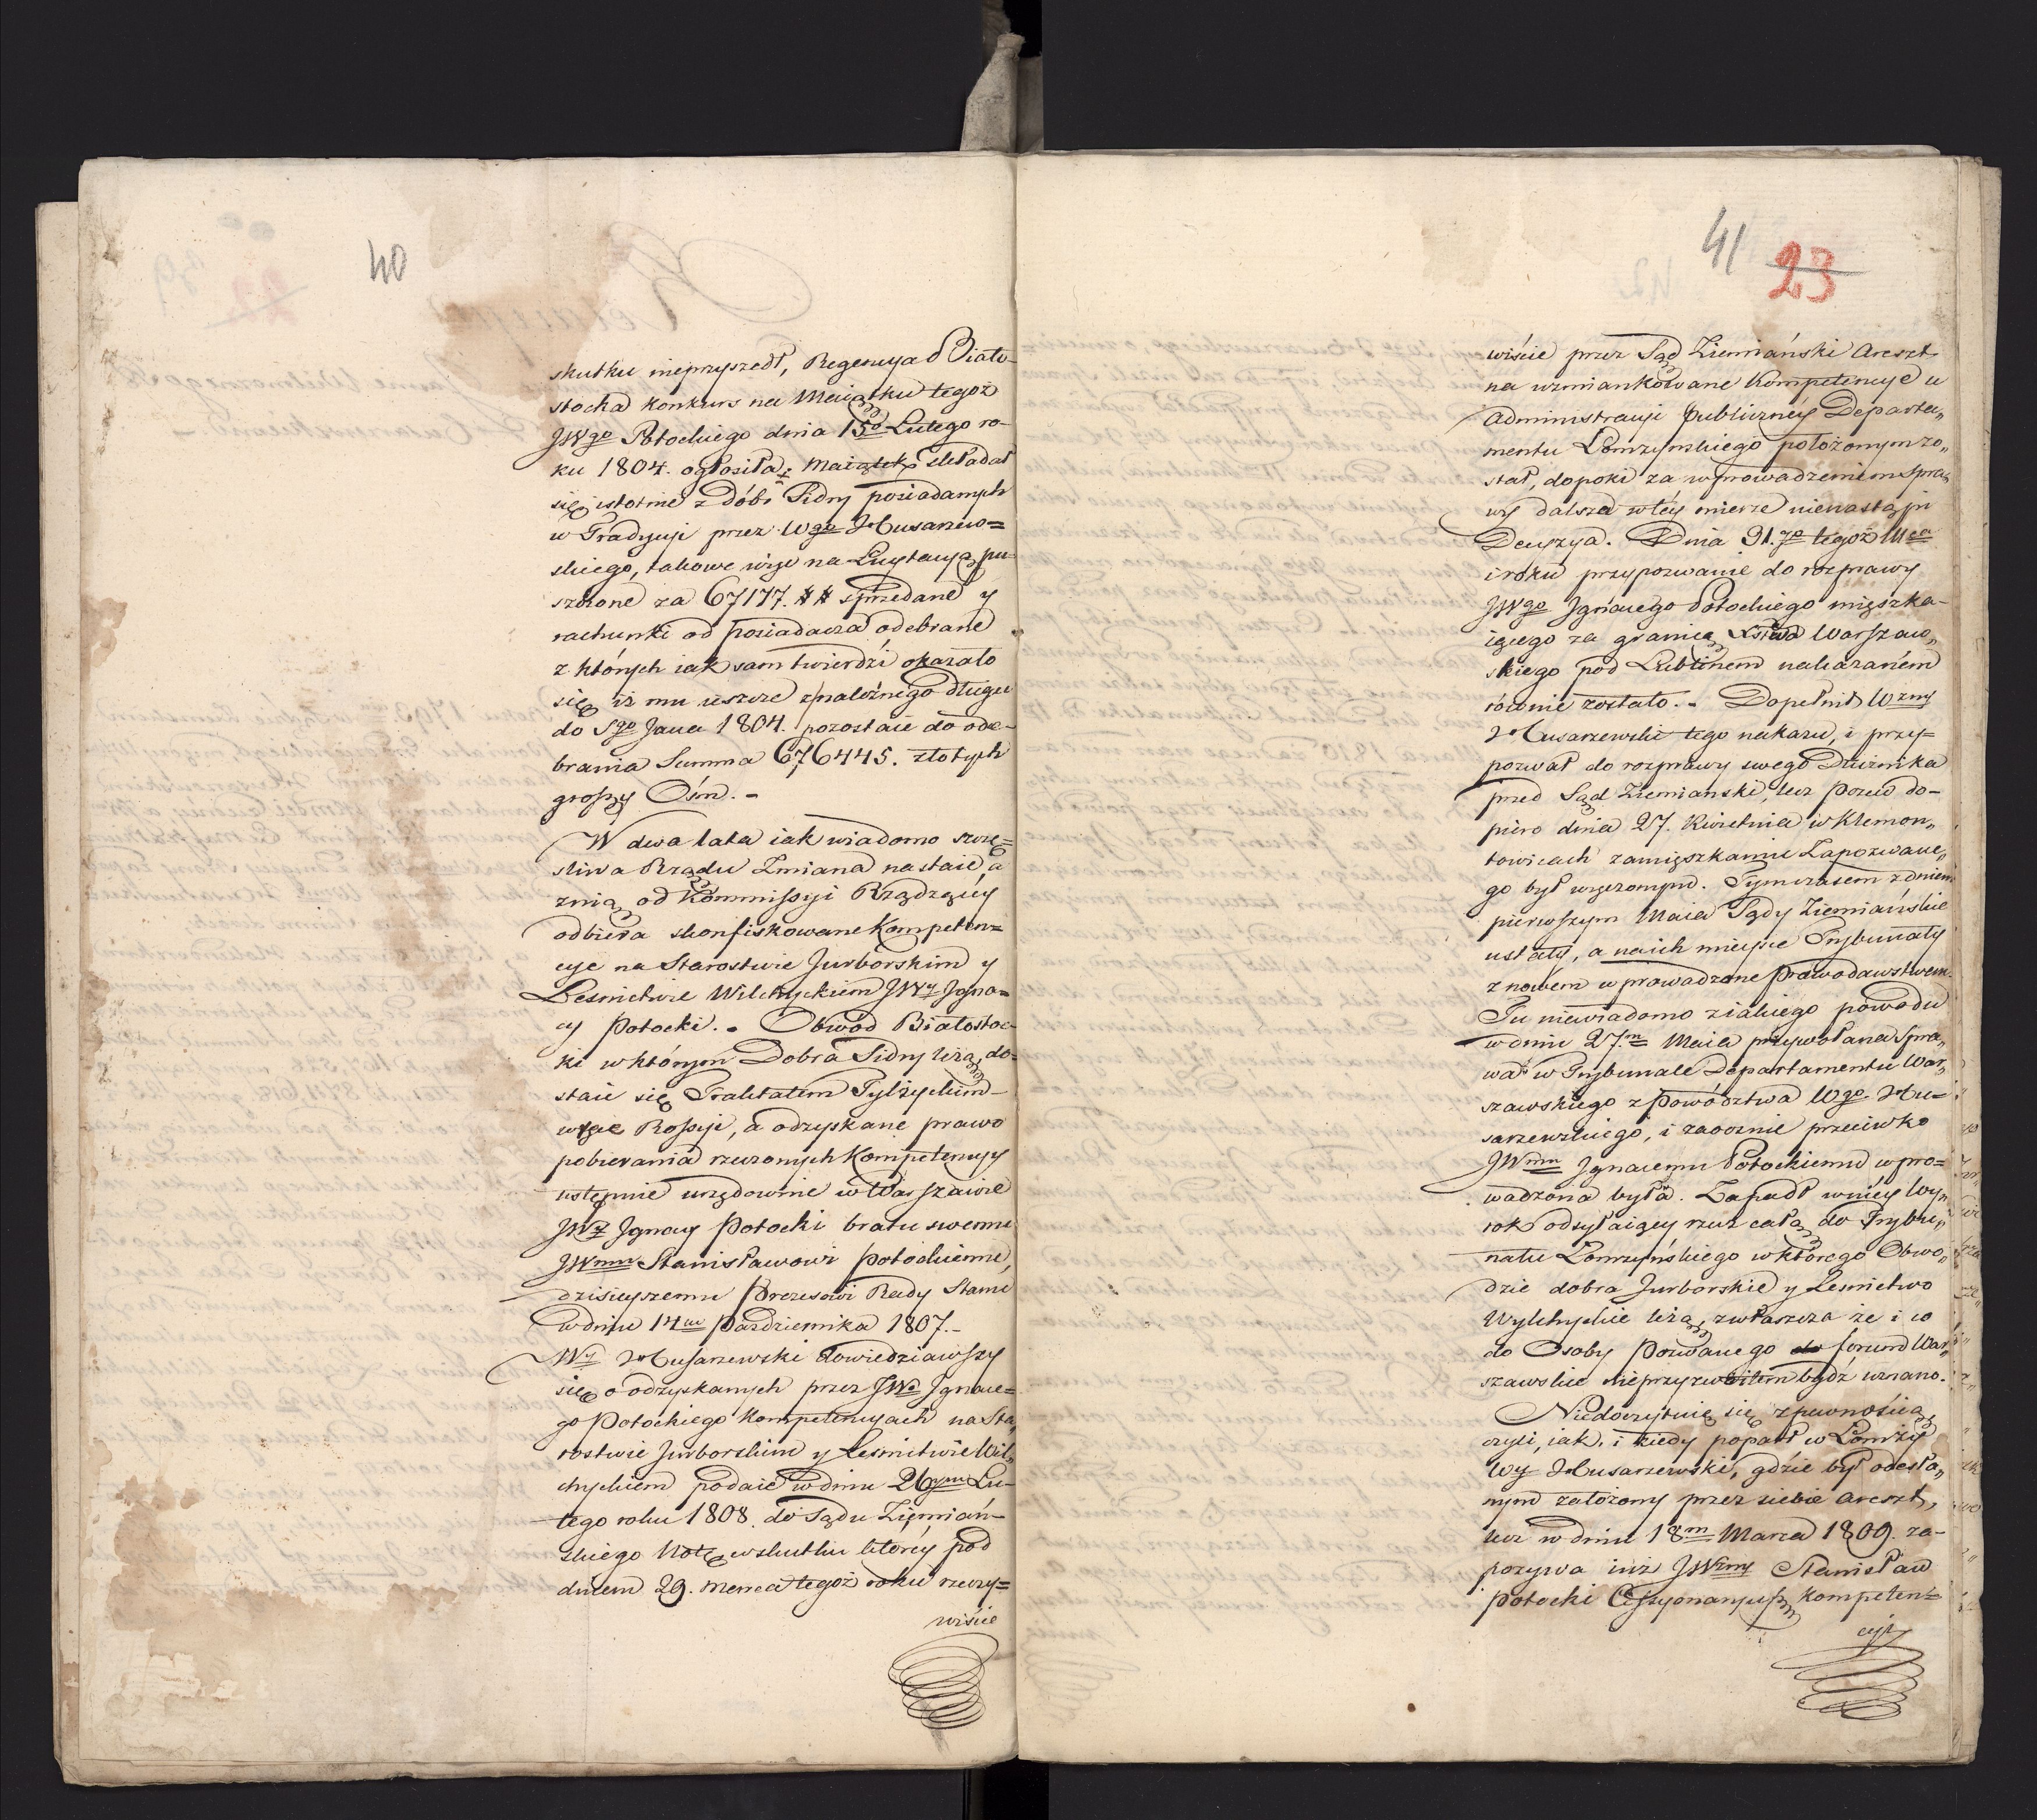 40
skutku nieprzyszedł, Regencya Biało-
stocka konkurs na Maiątku tegoż
JWgo Potockiego dnia 15o Lutego ro-
ku 1804. ogłosiła; Maiątek składał
się istotnie z dóbr Sidry posiadanych
w Tradycyi przez Wgo Husarzew=
skiego, takowe więc na Licytacyą pu-
szczone za 67177. ## sprzedane y
rachunki od posiadacza odebrane
z których iak sam twierdzi okazało
się iż mu ieszcze z należnego długu
do Sgo Jana 1804. pozostaie do ode-
brania Summa 676445. złotych
groszy Ośm. -
W dwa lata iak wiadomo szczę=
śliwa Rządu Zmiana nastaie, a
z nią od Kommissyi Rządzącey
odbiera skonfiskowane Kompeten=
cye na Starostwie Jurborskim y
Lesnictwie Wilchyckiem JWy Igna=
cy Potocki. - Obwód Białostoc-
ki w którym Dobra Sidry leżą, do-
staie się Traktatem Tylżyckim
w ręce Rossyi, a odzyskane prawo
pobierania rzeczonych Kompetencyy
ustępuie urzędownie w Warszawie
JWy Ignacy Potocki bratu swemu
JWmu Stanisławowi Potockiemu,
dzisieyszemu Prezesowi Rady Stanu
w dniu 14m Pazdziernika 1807. -
Wy Husarzewski dowiedziawszy
się o odzyskanych przez JWo Ignace=
go Potockiego Kompetencyach na Sta„
rostwie Jurborskim y Lesnictwie Wil„
chyckiem podaie w dniu 26ym Lu-
tego roku 1808. do Sądu Ziemiań-
skiego Notę w skutku którey pod
dniem 29. Marca tegoż roku rzeczy=
wiście
41
23
wiście przez Sąd Ziemiański Areszt
na wzmiankowane Kompetencye u
Administracyi Publiczney Departa„
mentu Łomzynskiego położonym zo„
stał, dopoki za wprowadzeniem Spra„
wy dalsza w tey mierze nienastąpi
Decyzya. Dnia 31.go tegoż Mca
i roku przypozwanie do rozprawy
JWgo Ignacego Potockiego mięszka-
iącego za granicą Xstwa Warszaw„
skiego pod Lublinem nakazanem
równie zostało. - Dopełnił Wzny
Husarzewski tego nakazu, i przy=
pozwał do rozprawy swego Dłużnika
przed Sąd Ziemianski, lecz Pozew do-
piero dnia 27. Kwietnia w Klemon„
towicach zamięszkaniu Zapozwane„
go był wręczonym. Tymczasem z dniem
pierwszym Maia Sądy Ziemiańskie
ustały, a na ich mieysce Trybunały
z nowem wprowadzone Prawodawstwem.
Tu niewiadomo z iakiego powodu
w dniu 27.m Maia przywołana Spra„
wa w Trybunale Departamentu War„
szawskiego z Powództwa Wgo Hu=
sarzewskiego, i zaocznie przeciwko
JWmu Ignacemu Potockiemu wpro=
wadzona była. Zapadł w niey Wy„
rok odsyłaiący rzecz całą do Trybu„
nału Łomzyńskiego w którego Obwo„
dzie dobra Jurborskie y Lesnictwo
Wylchyckie leżą, zwłaszcza że i co
do Osoby Pozwanego forum War„
szawskie nieprzyzwoitem bydź uznano.
Niedoczytuię się z pewnością
czyli, iak, i kiedy poparł w Łomży
Wy Husarzewski, gdzie był odesła„
nym założony przez siebie Areszt,
lecz w dniu 18m Marca 1809. za-
pozywa iuż JWzny Stanisław
Potocki Cessyonaryusz Kompeten=
cyi